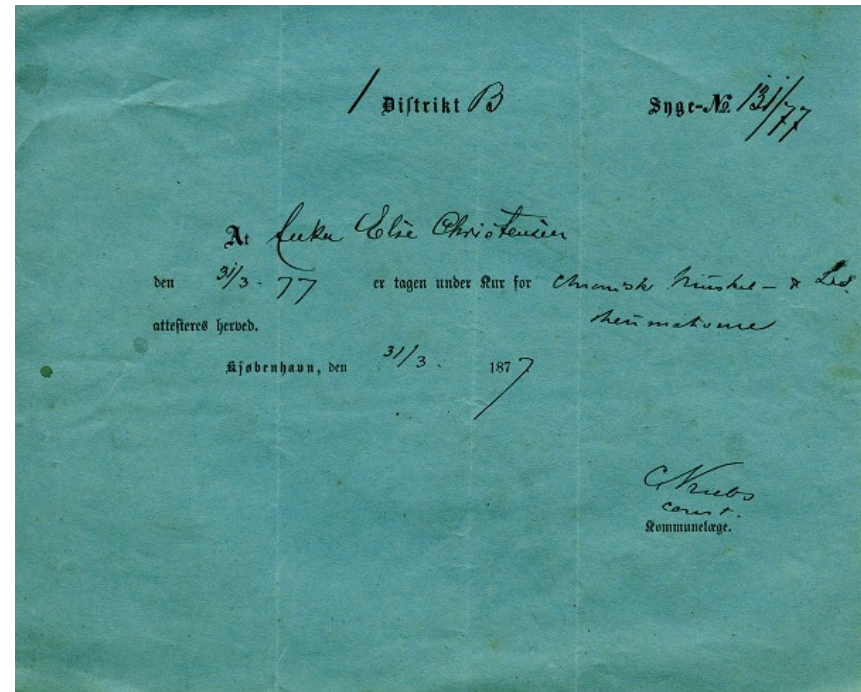 1 Distrikt B Syge-No. 131/77
At Enke Else Christensen
den 31/3 - 77 er tagen under Kur for chronisk Muskel- & Led
attesteres herved. rheumatisme
Kjøbenhavn, den 31/3. 1877
C Krebs
const.
Kommunelæge.